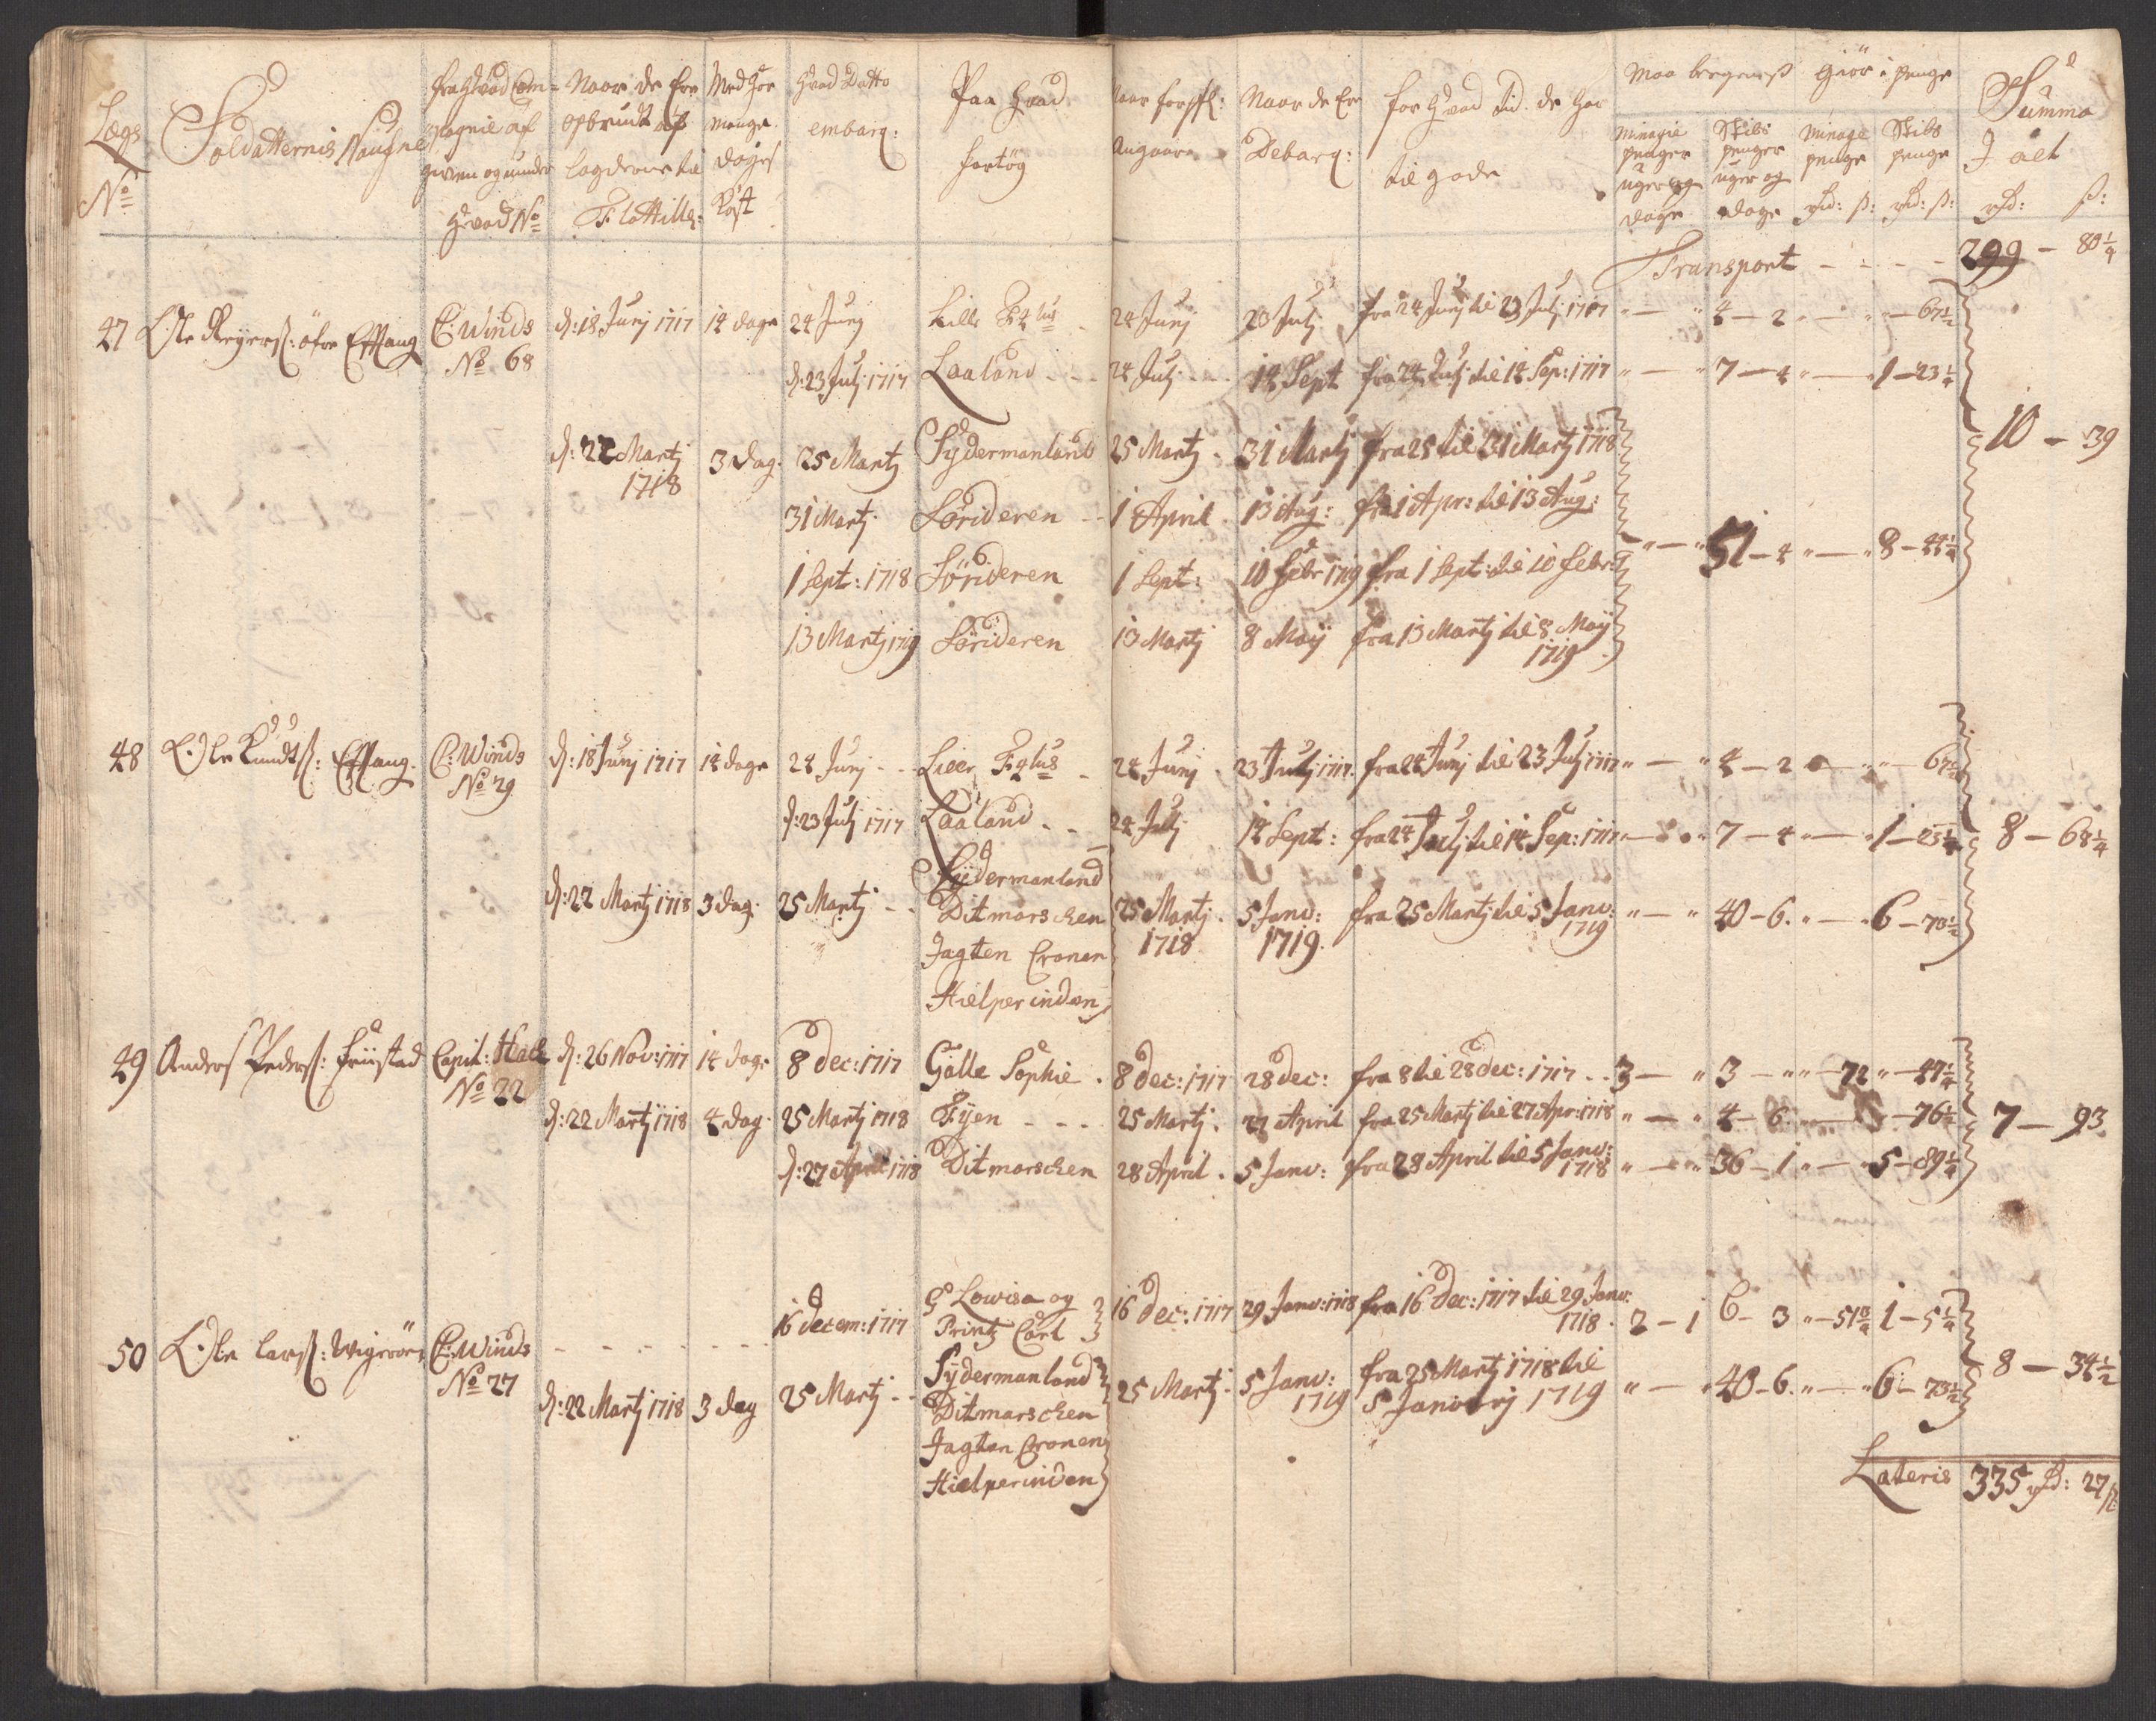 Lægs No
Soldatternis Naufne
fra Hvad Com-
pagnie af
given og under
Hvad No
Naar de Ere
opbrudt af
lagderne til
Flottille:
Med Hor
mange
dages
Kost
Hvad Datto
embarq:
Paa Hvad
fartög
Angaar
Naar de Er
Debarq:
for Hvad tid de Har
til gode
Maa beregness
Giör i penge
Minagie
penger
uger og
dage
Skibs
penger
uger og
dage
Minage
penge
rd: ß:
Skibs
penge
rd: ß:
Summa
I alt
rd: ß:
Transport - - - - 299 - 80 1/4
47 Ole Reyerß: öfre Effang C: Winds d: 18 Junj 1717 14 dage 24 Junj Lille 24 Junj 23 Julj fra 24 Junj til 23 Julj 1717 " — " 4 — 2 " — " " — 67 1/2
No 68
d: 23 Julj 1717 Laaland - - - 24 Julj - - 14 Sept fra 24 Julj til 14 Sep: 1717 " — " 7 — 4 " — " 1 — 23 1/4
10 — 39
d: 22 Martj 3 dag. 25 Martj Sydermanland 25 Martj - 31 Martj fra 25 til 31 Martj 1718
1718
31 Martj. Söridderen - - 1 April. 13 Aug: fra 1 Apr: til 13 Aug:
" — " 51 — 4 " — " 8 — 44 1/4
1 Sept: 1718 Söridderen 1 Sept: 10 Febr 1719 fra 1 Sept: til 10 Febr:
13 Martj 1719 Söridderen 13 Martj 8 Maÿ fra 13 Martj til 8 Maÿ
1719
48 Ole Knudtß: Effang. C: Winds d: 18 Junj 1717 14 dage 24 Junj - - 24 Junj 23 Julj 1717. fra 24 Junj til 23 Julj 1717 " — " 4 — 2 " — 67 1/2
No 29
d: 23 Julj 1717 Laaland - - 24 Julj 14 Sept: fra 24 Julj til 14 Sep: 1717 " — " 7 — 4 " — " 1 — 23 1/4 8 — 68 1/4
Sydermanland
d: 22 Martj 1718 3 dag. 25 Martj - - Ditmarschen 25 Martj. 5 Janv: fra 25 Martj til 5 Janv: " — " 40 — 6. " — " 6 — 73 1/2
1718 1719. 1719
Jagten Cronen
Hielperinden
49 Anders Pederß: Friistad Capit: d: 26 Nov: 1717 14 dage 8 dec: 1717 Galle Sophie. 8 dec: 1717 28 dec: fra 8 til 28 dec: 1717 - - 3 — " 3 — " " — 72 " — 47 1/4
No 22
d: 22 Martj 1718 4 dag. 25 Martj 1718 Fyen - - - 25 Martj. 27 April fra 25 Martj til 27 Apr: 1718 " — " 4 — 6 — 76 1/2 7 — 93
d: 27 April 1718 Ditmarschen 28 April. 5 Janv: fra 28 April til 5 Janv: " — " 36 — 1 " — " 5 — 89 1/4
1718
50 Ole Larß: Wigeröer C: Winds - - - - - - 16 Decem: 1717 G Lowisa og 16 dec: 1717 29 Janv: 1718 fra 16 dec: 1717 til 29 Janv: 2 — 1 6 — 3 " — 51 3/4 1 — 5 1/4
Printz Carl 1718.
No 27
Sydermanland
d: 22 Martj 1718 3 dag 25 Martj - - Ditmarschen 25 Martj. 5 Janv: fra 25 Martj 1718 til " — " 40 — 6. " — " 6 — 73 1/2 8 — 34 1/2
1719 5 Janvarj 1719
Jagten Cronen
Hielperinden
Lateris 335 rd: 27 ß